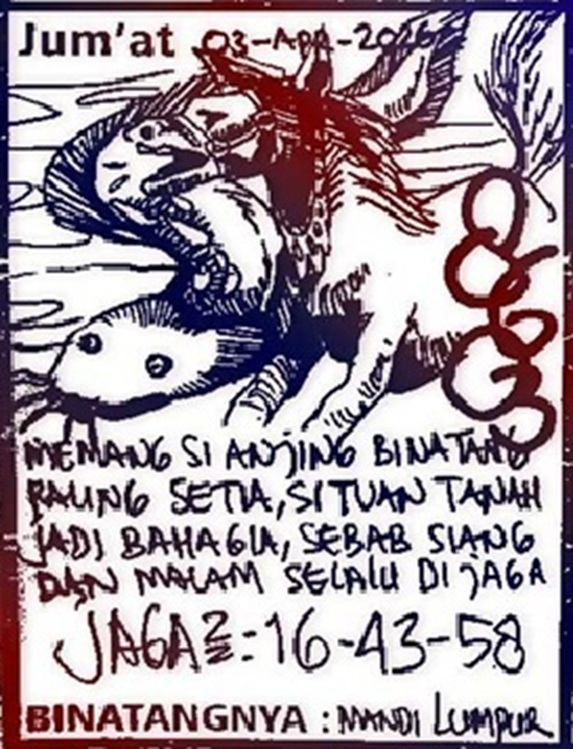 Jum'at 03-APR-2026
MEMANG SI ANJING BINATANG
PALING SETIA, SI TUAN TANAH
JADI BAHAGIA, SEBAB SIANG
DAN MALAM SELALU DI JAGA
JAGA2:-16-43-58
BINATANGNYA : MANDI LUMPUR